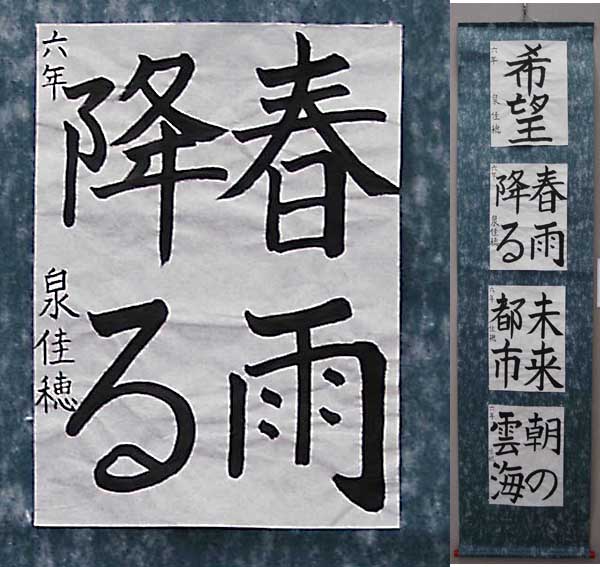 春雨
降る
六年 泉佳穂
希望
六年 泉佳穂
春雨
降る
六年 泉佳穂
未来
都市
六年 佳穂
朝の
雲海
六年